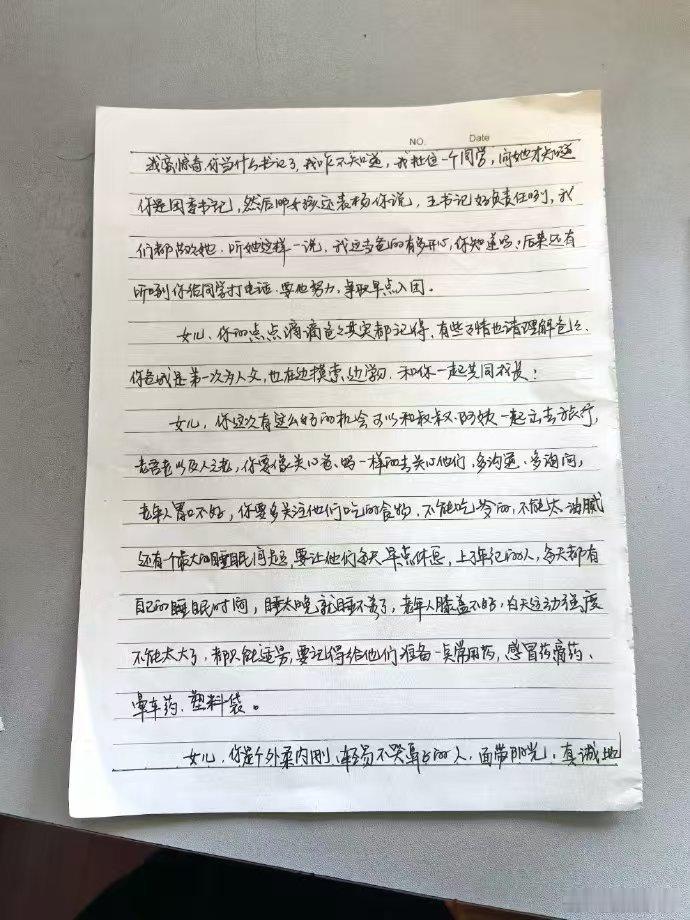 NO. Date
我蛮惊奇,你当什么书记了,我咋不知道,我扯住一个同学,问她才知道
你是团委书记,然后那女孩还表扬你说,王书记好负责任咧,我
们都喜欢她.听她这样一说,我这当爸的有多开心,你知道吗?后来还有
听到你给同学打电话.要他努力,争取早点入团。
女儿,你的点点滴滴爸爸其实都记得,有些事情也请理解爸爸,
你爸我是第一次为人父,也在边摸索,边学习.和你一起共同成长!
女儿,你这次有这么好的机会可以和叔叔.阿姨一起出去旅行,
老吾老以及人之老,你要像关心爸、妈一样的去关心他们,多沟通、多询问,
老年人胃口不好,你要多关注他们吃的食物.不能吃冷的,不能太油腻
还有一个最大的睡眠问题,要让他们每天早点休息,上了年纪的人,每天都有
自己的睡眠时间,睡太晚就睡不着了,老年人膝盖不好,白天运动强度
不能太大了,都只能适当,要记得给他们准备一点常用药,感冒药肠药、
晕车药、塑料袋。
女儿,你是个外柔内刚、轻易不哭鼻子的人,面带阳光,真诚地